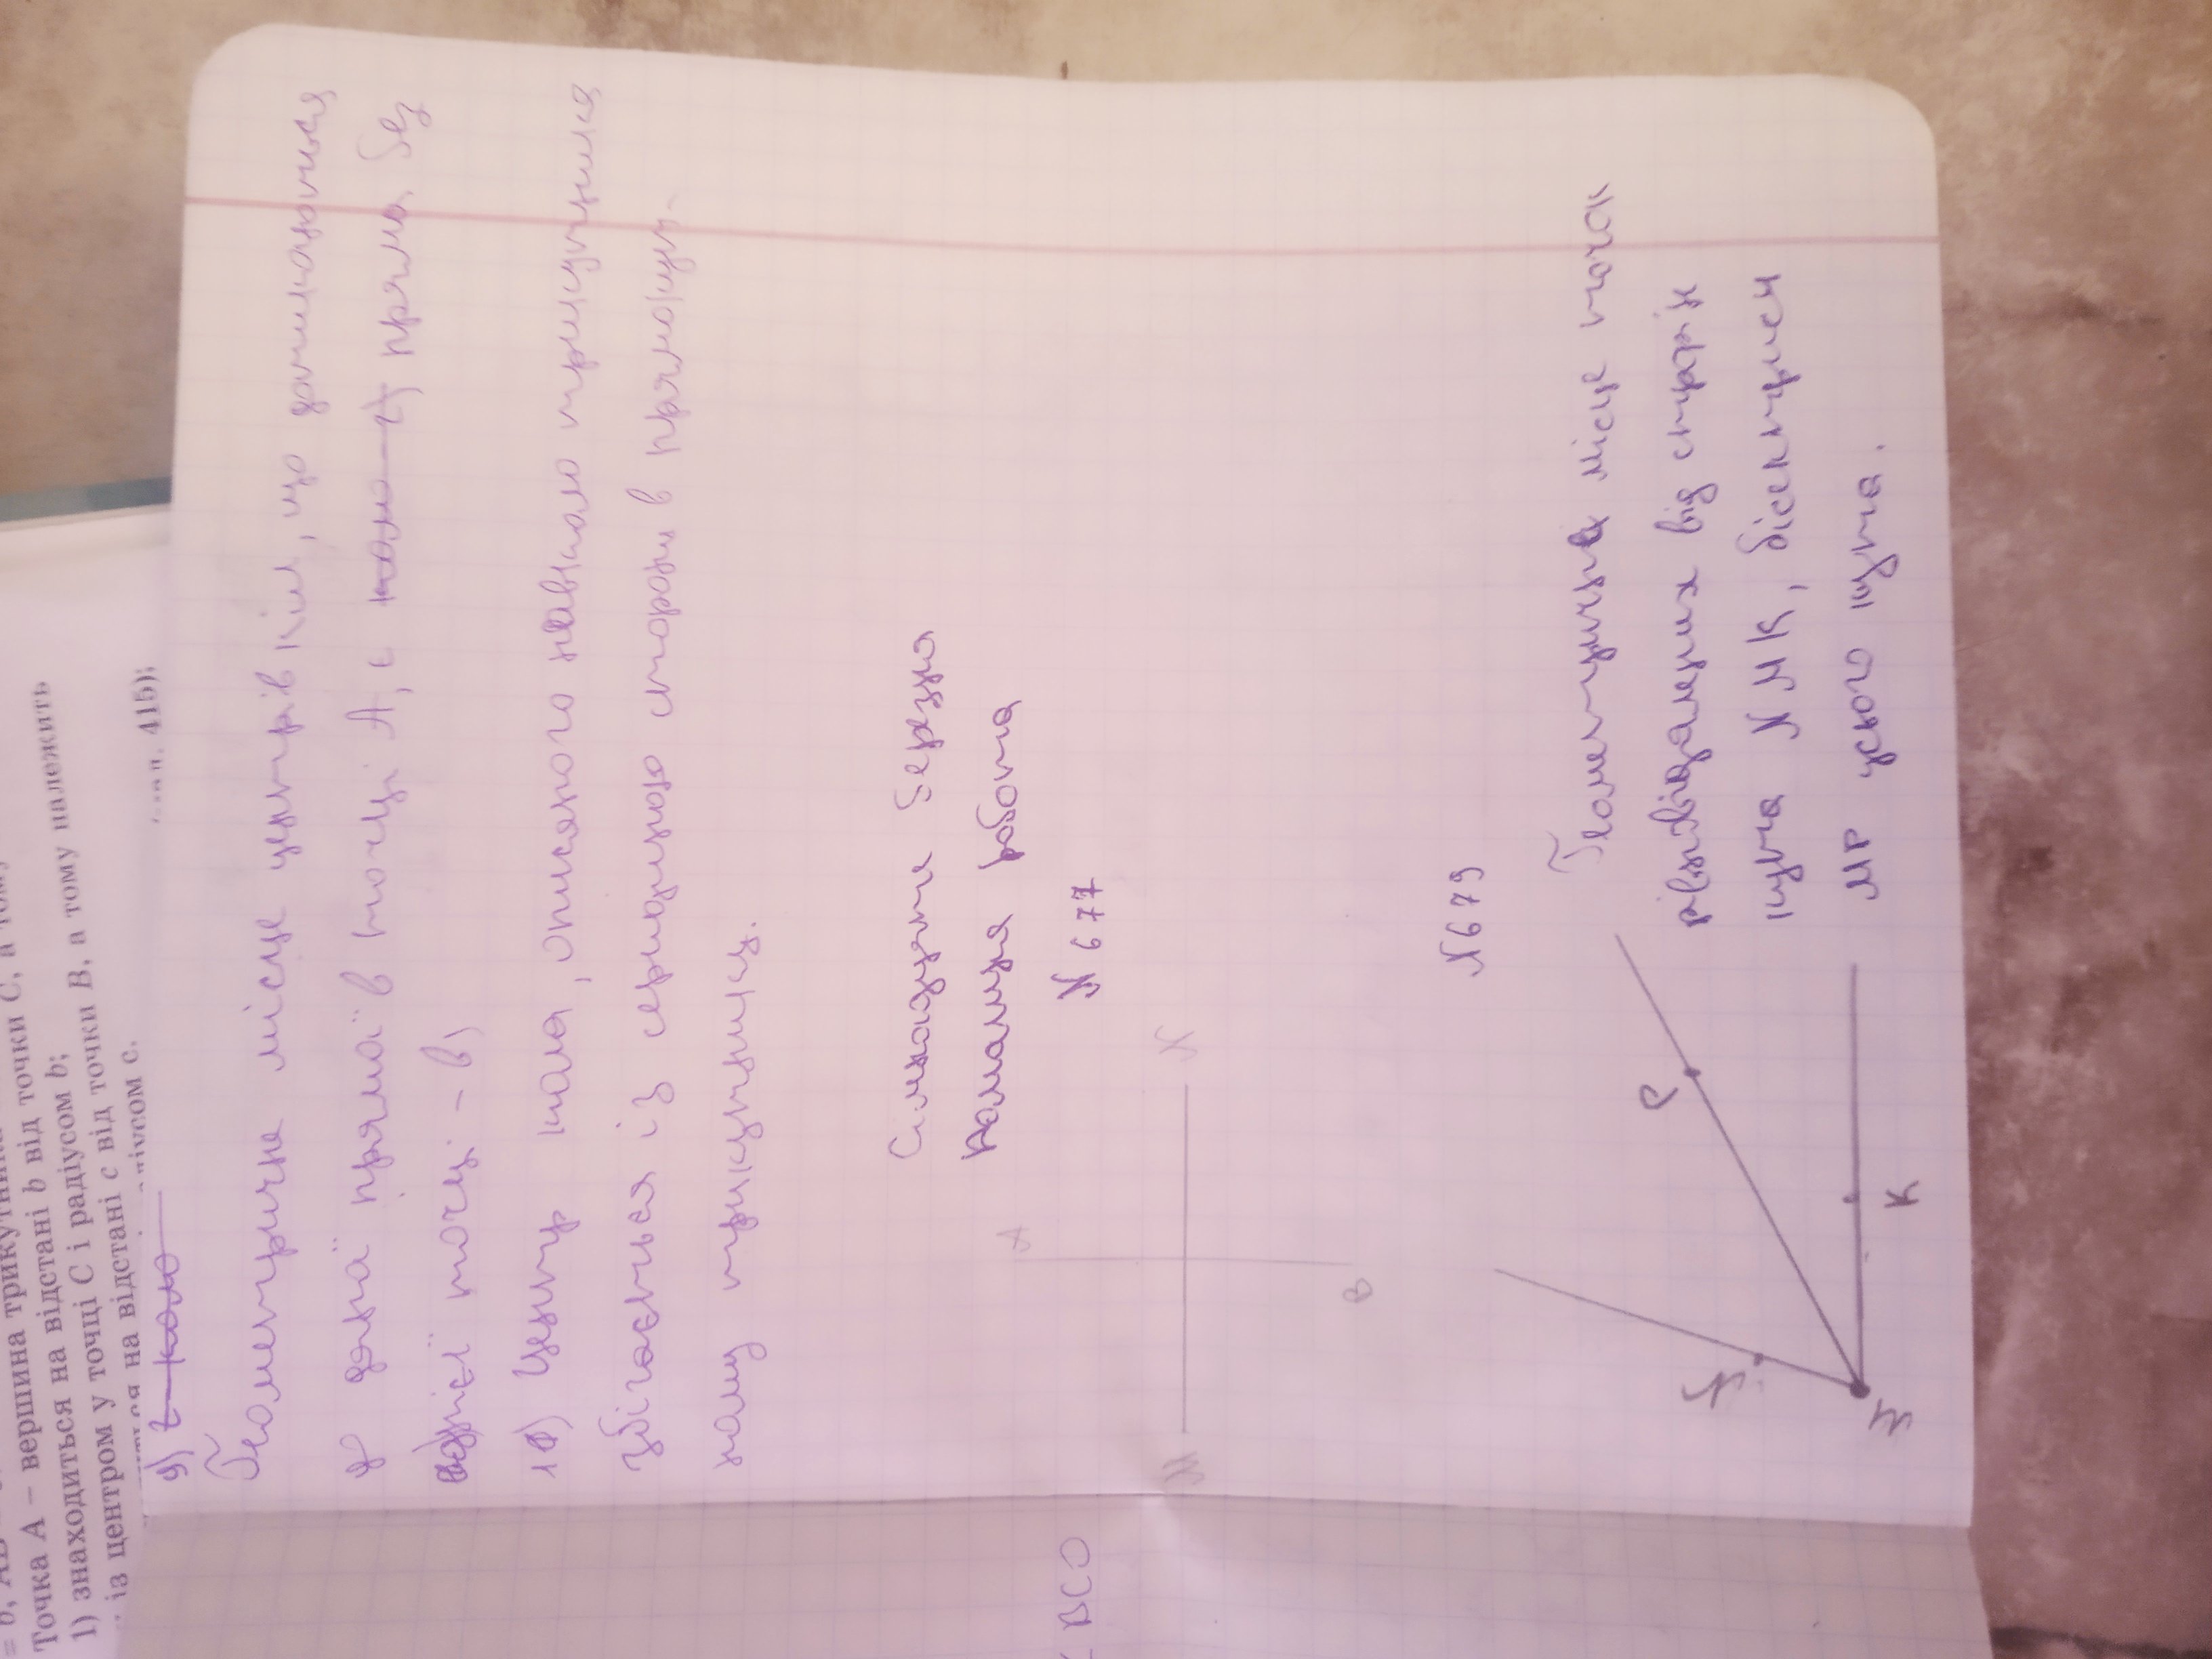 = b, AB
Точка A – вершина трикутника
1) знаходиться на відстані b від точки C, а тому
із центром у точці C і радіусом b;
на відстані c від точки B, а тому належить
радіусом c.
41б));
9) г – коло
Геометричне місце центрів кіл, що дотикаються
до даної прямої в точці A, є коло – г) пряма без
однієї точці – в)
10) Центр кола, описаного навколо трикутника
збігається із серединою сторони в прямокут-
ному трикутнику.
Сімнадцяте березня
Домашня робота
N 677
A
M
N
B
N 679
Геометричне місце точок
рівновіддалених від сторін
кута NMK, бісектрисеи
MP цього кута.
N
P
M
K
< BCO